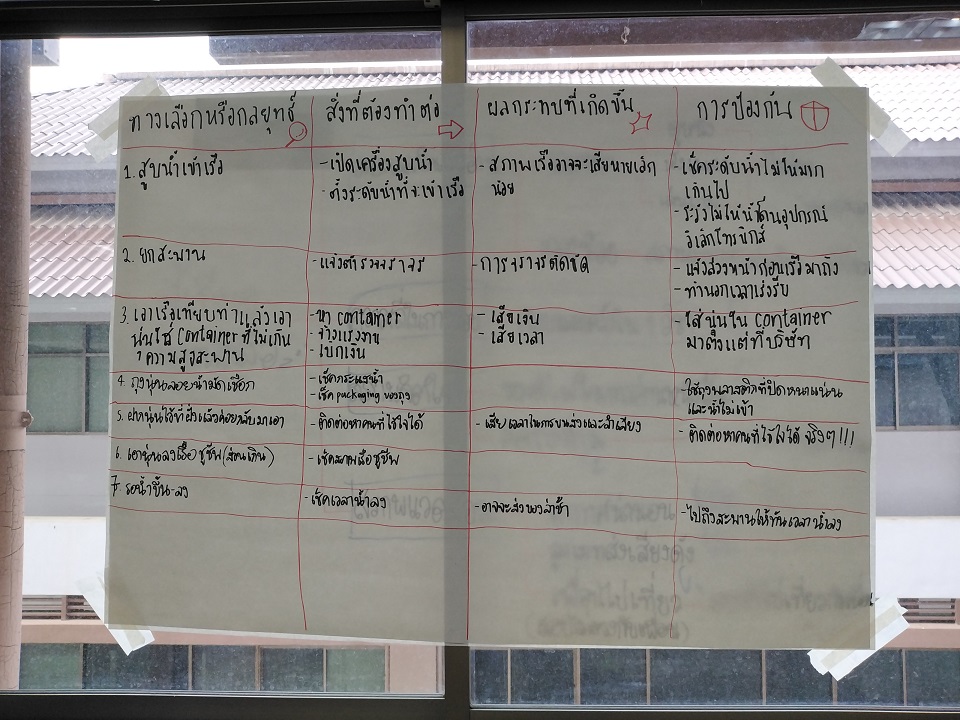 ทางเลือกหรือกลยุทธ์
สิ่งที่ต้องทำต่อ
ผลกระทบที่เกิดขึ้น
การป้องกัน
1. สูบน้ำเข้าเรือ
- เปิดเครื่องสูบน้ำ
- ตั้งระดับน้ำที่จะเข้าเรือ
- สภาพเรืออาจจะเสียหายเล็ก
น้อย
- เช็คระดับน้ำไม่ให้มาก
เกินไป
- ระวังไม่ให้น้ำโดนอุปกรณ์
อิเล็กโทรนิกส์
2. ยกสะพาน
- แจ้งตำรวจจราจร
- การจราจรติดขัด
- แจ้งล่วงหน้าก่อนเรือมาถึง
- ทำนอกเวลาเร่งรีบ
3. เอาเรือเทียบท่าแล้วเอา
นุ่นใส่ Container ที่ไม่เกิน
ความสูงสะพาน
- หา container
- จ้างแรงงาน
- เบิกเงิน
- เสียเงิน
- เสียเวลา
- ใส่นุ่นใน container
มาตั้งแต่ที่บริษัท
4. ถุงนุ่นลอยน้ำมัดเชือก
- เช็คกระแสน้ำ
- เช็ค packaging ของถุง
- ใช้ถุงพลาสติกที่ปิดหนาแน่น
และน้ำไม่เข้า
5. ฝากนุ่นไว้ที่ฝั่งแล้วค่อยกลับมาเอา
- ติดต่อหาคนที่ไว้ใจได้
- เสียเวลาในการขนส่งและลำเลียง
- ติดต่อหาคนที่ไว้ใจได้ จริงๆ!!!
6. เอานุ่นลงเรือชูชีพ (ส่วนเกิน)
- เช็คสภาพเรือชูชีพ
7. รอน้ำขึ้น-ลง
- เช็คเวลาน้ำลง
- อาจจะส่งของล่าช้า
- ไปถึงสะพานให้ทันเวลาน้ำลง